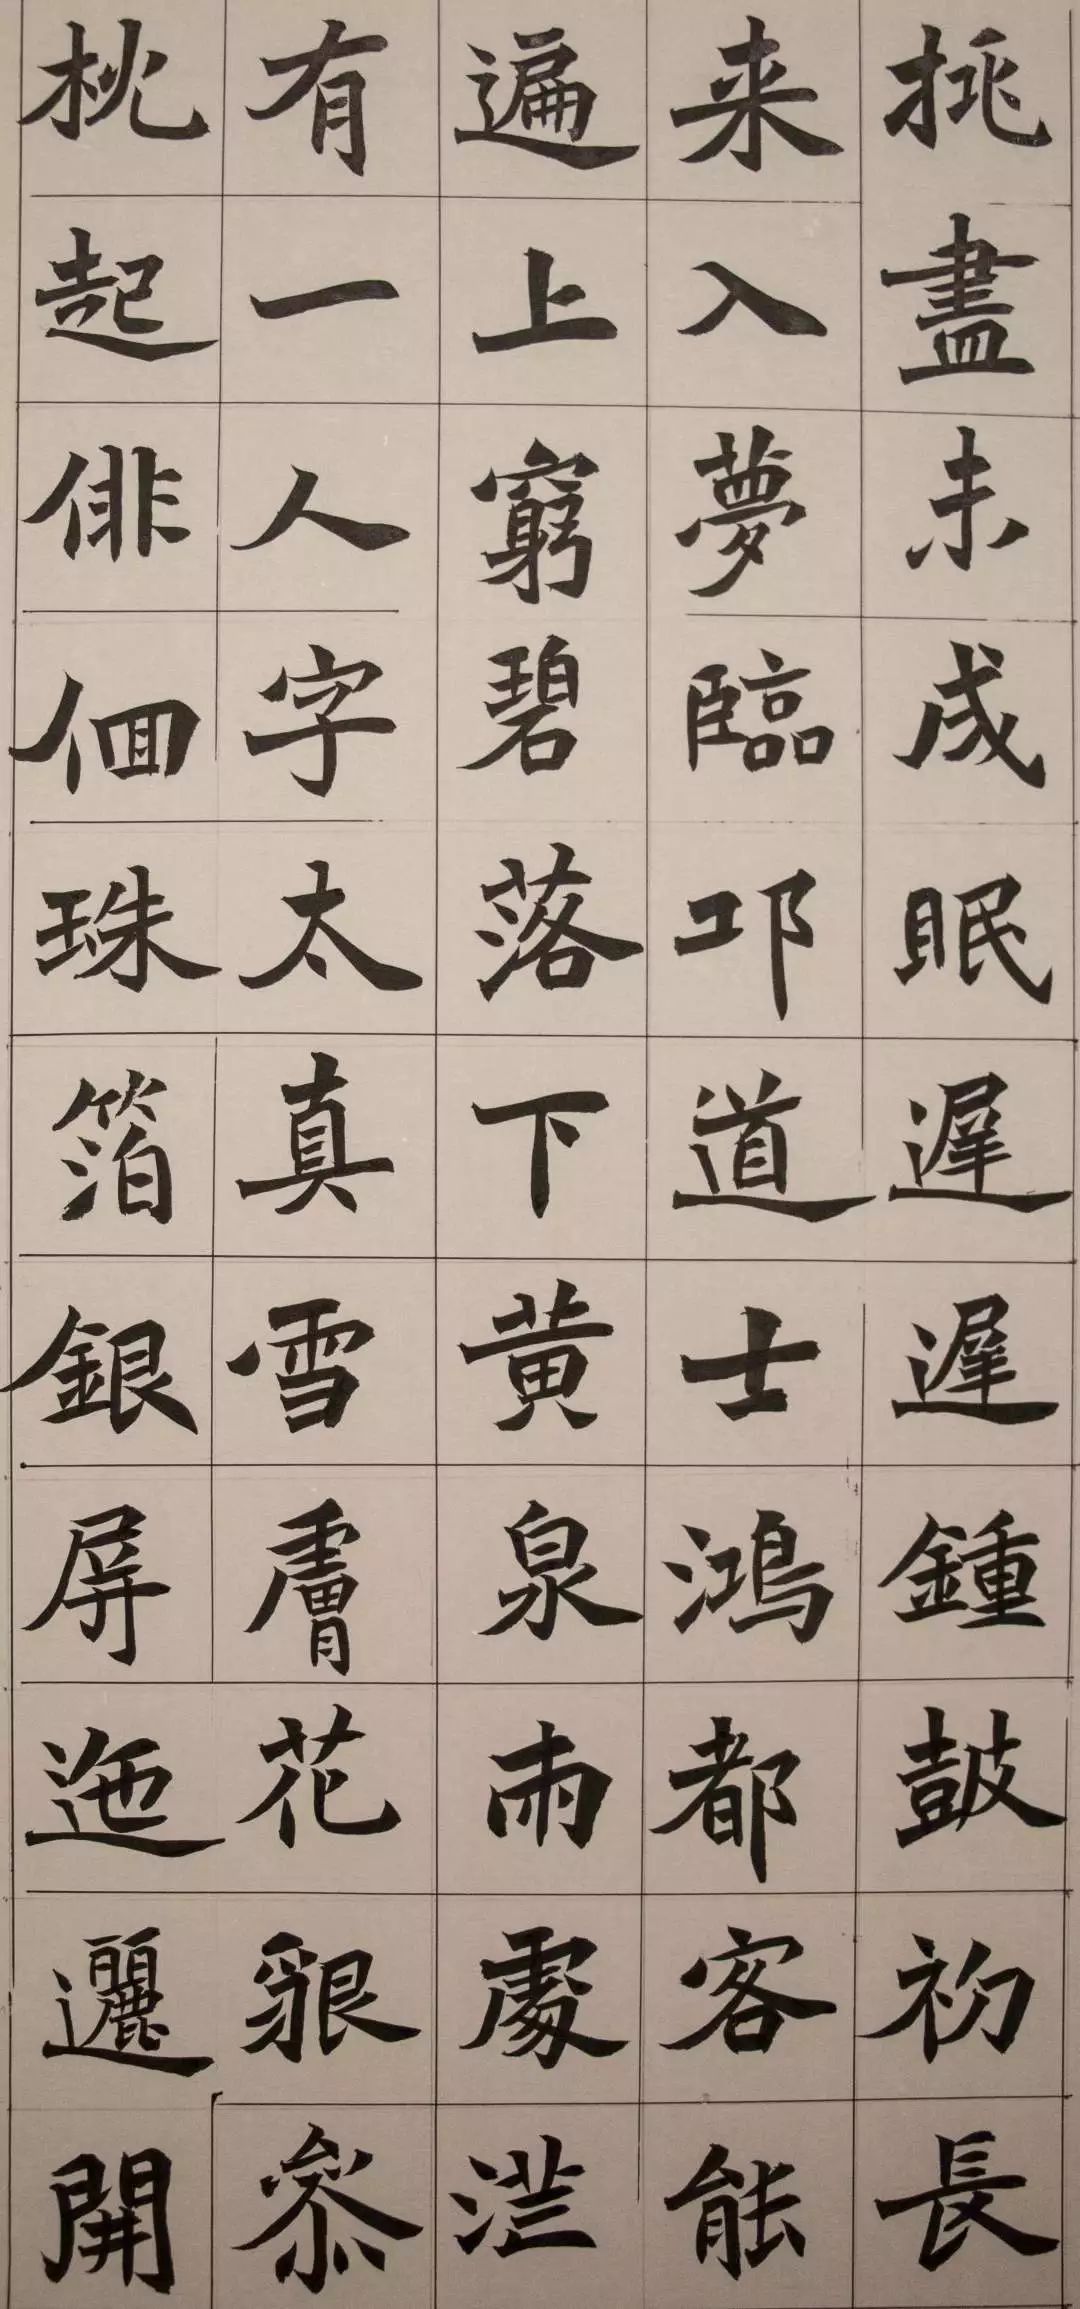 挑盡未成眠遲遲鍾鼓初長
来入夢臨邛道士鴻都客能
遍上窮碧落下黄泉兩處茫
有一人字太真雪膚花貌參
枕起徘徊珠箔銀屏迤邐開